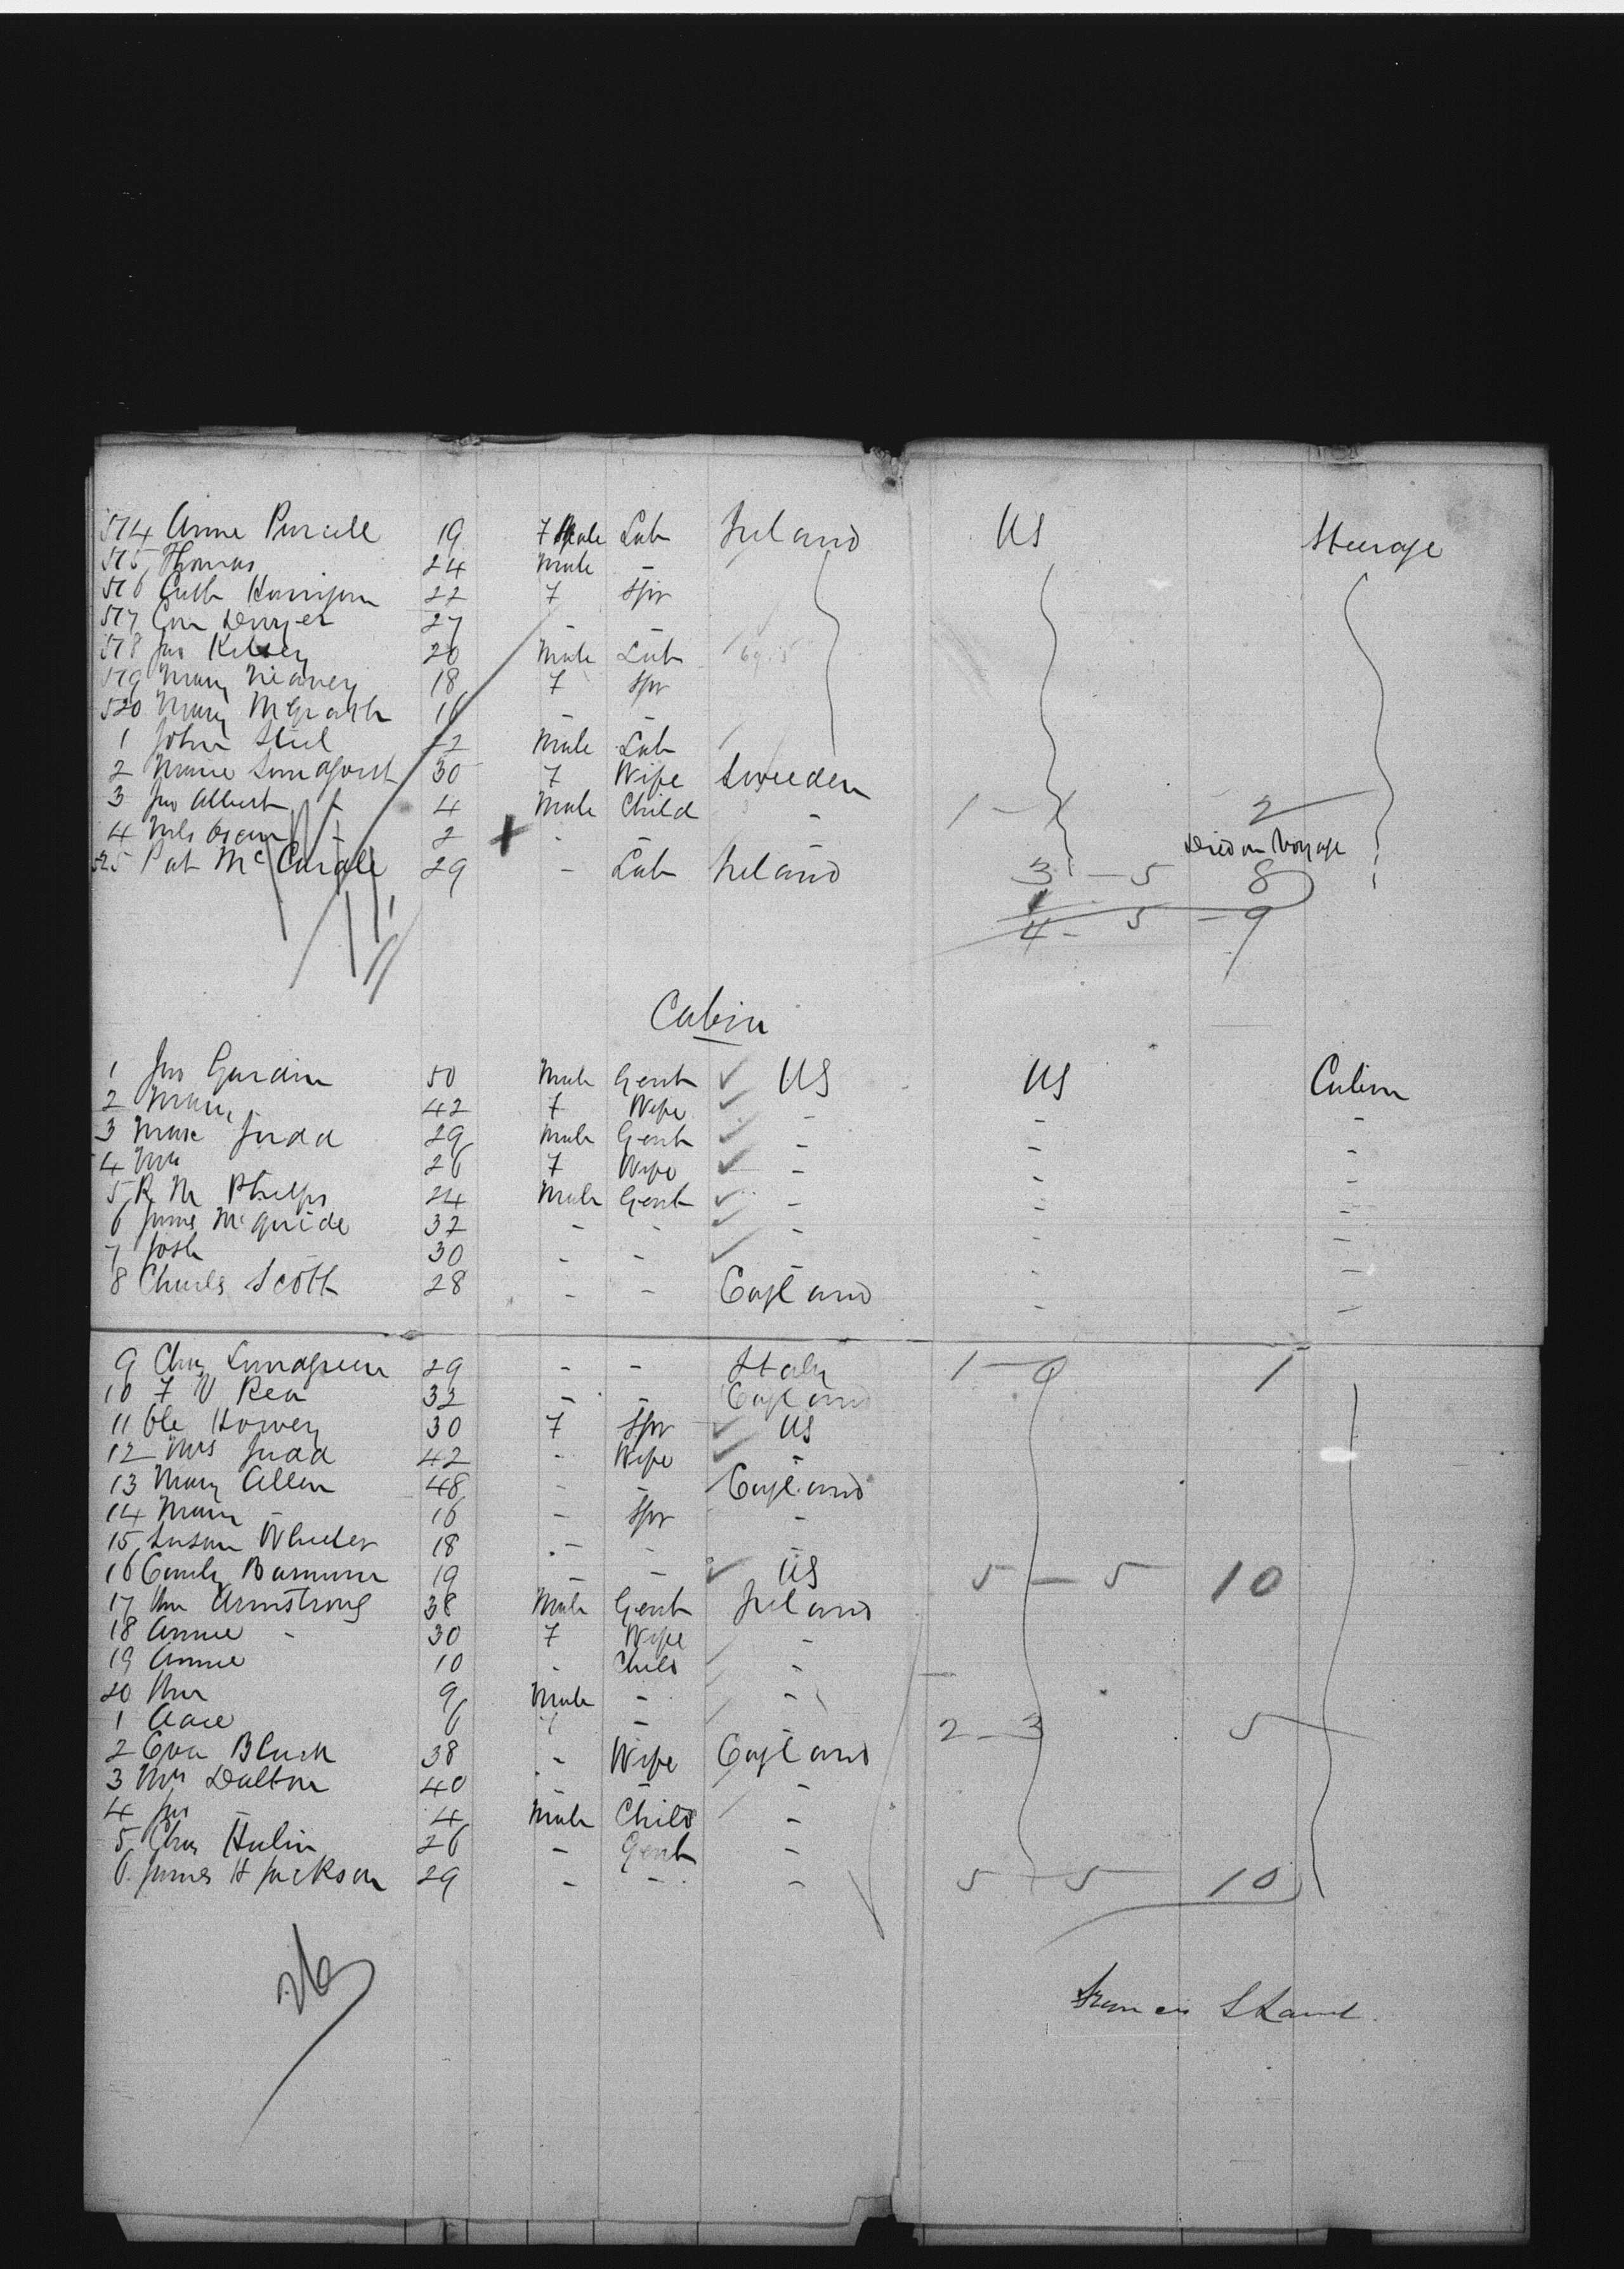 514 Anne Purcell 19 F Male Lab Ireland US Steerage
515 Thomas 24 Male -
516 Cath 22 F Spr
517 Dwyer 27 - -
518 Jno Kelsey 20 Male Lab
519 Mary 18 F Spr
520 Mary McGrath 16 - -
1 John 22 Male Lab
2 30 F Wife Sweeden
3 Jno Albert 4 Male Child - 1 - 1 2
4 2 - - Died on Voyage
525 Pat McCardle 29 - Lab Ireland 3 - 5 8
1
4 - 5 - 9
Cabin
1 Jno 50 Male Gent US US Cabin
2 Mary 42 F Wife - - -
3 Max Judd 29 Male Gent - - -
4 Mrs 26 F Wife - - -
5 R M Phelps 24 Male Gent - - -
6 James McGuide 32 - - - - -
7 Josh 30 - - - - -
8 Charles Scott 28 - - England - -
9 Chas Lundgreen 29 - - Italy 1 - 0 1
10 F W Rea 32 - - England
11 Ole 30 F Spr US
12 Mrs Judd 42 - Wife -
13 Mary Allen 48 - - England
14 Mary - 16 - Spr -
15 Susan Wheeler 18 - - -
16 Emily Barnum 19 - - US 5 - 5 10
17 Wm Armstrong 38 Male Gent Ireland
18 Annie - 30 F Wife -
19 Annie 10 - Child -
20 Wm 9 Male - -
1 6 - - 2 - 3 5
2 Eva 38 - Wife England
3 Mrs Dalton 40 - - -
4 Jno - 4 Male Child -
5 Chas Hulin 26 - Gent -
6 James H Jackson 29 - - - 5 - 5 10
26
Francis